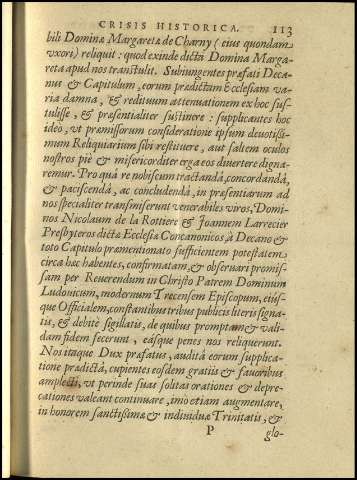 CRISIS HISTORICA. 113
bili Dominæ Margaretæ de Charny (eius quondam
vxori) reliquit: quod exinde dicta Domina Marga-
reta apud nos transtulit. Subiungentes præfati Deca-
nus & Capitulum, eorum prædictam Ecclesiam va-
ria damna, & redituum attenuationem ex hoc sus-
tulisse, & præsentialiter sustinere: supplicantes hoc
ideo, vt præmissorum consideratione ipsum deuotissi-
mum Reliquiarium sibi restituere, aut saltem oculos
nostros piè & misericorditer erga eos diuertere digna-
remur. Pro quâ re nobiscum tractandâ, concordandâ,
& paciscendâ, ac concludendâ, in præsentiarum ad
nos specialiter transmiserunt venerabiles viros, Domi-
nos Nicolaum de la Rottiere & Joannem Larrecier
Presbyteros dictæ Ecclesiæ Concanonicos, à Decano &
toto Capitulo præmentionato sufficientem potestatem
circa hæc habentes, confirmatam, & obseruari promis-
sam per Reuerendum in Christo Patrem Dominum
Ludouicum, modernum Trecensem Episcopum, eius-
que Officialem, constantibus tribus publicis literis signa-
tis, & debitè sigillatis, de quibus promptam & vali-
dam fidem fecerunt, easque penes nos reliquerunt.
Nos itaque Dux præfatus, auditâ eorum supplica-
tione prædictâ, cupientes eosdem gratiis & fauoribus
amplecti, vt perinde suas solitas orationes & depre-
cationes valeant continuare, imo etiam augmentare,
in honorem sanctissimæ & indiuiduæ Trinitatis, &
P glo-